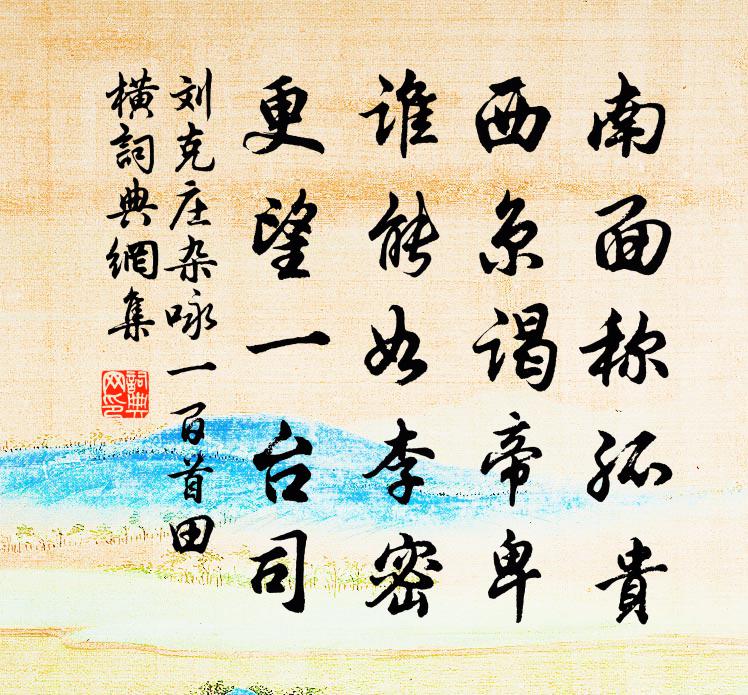 南面称孤貴
西京謁帝卑
誰能如李密
更望一台司
刘克庄杂咏一百首田
横詞典網集
詞典网印